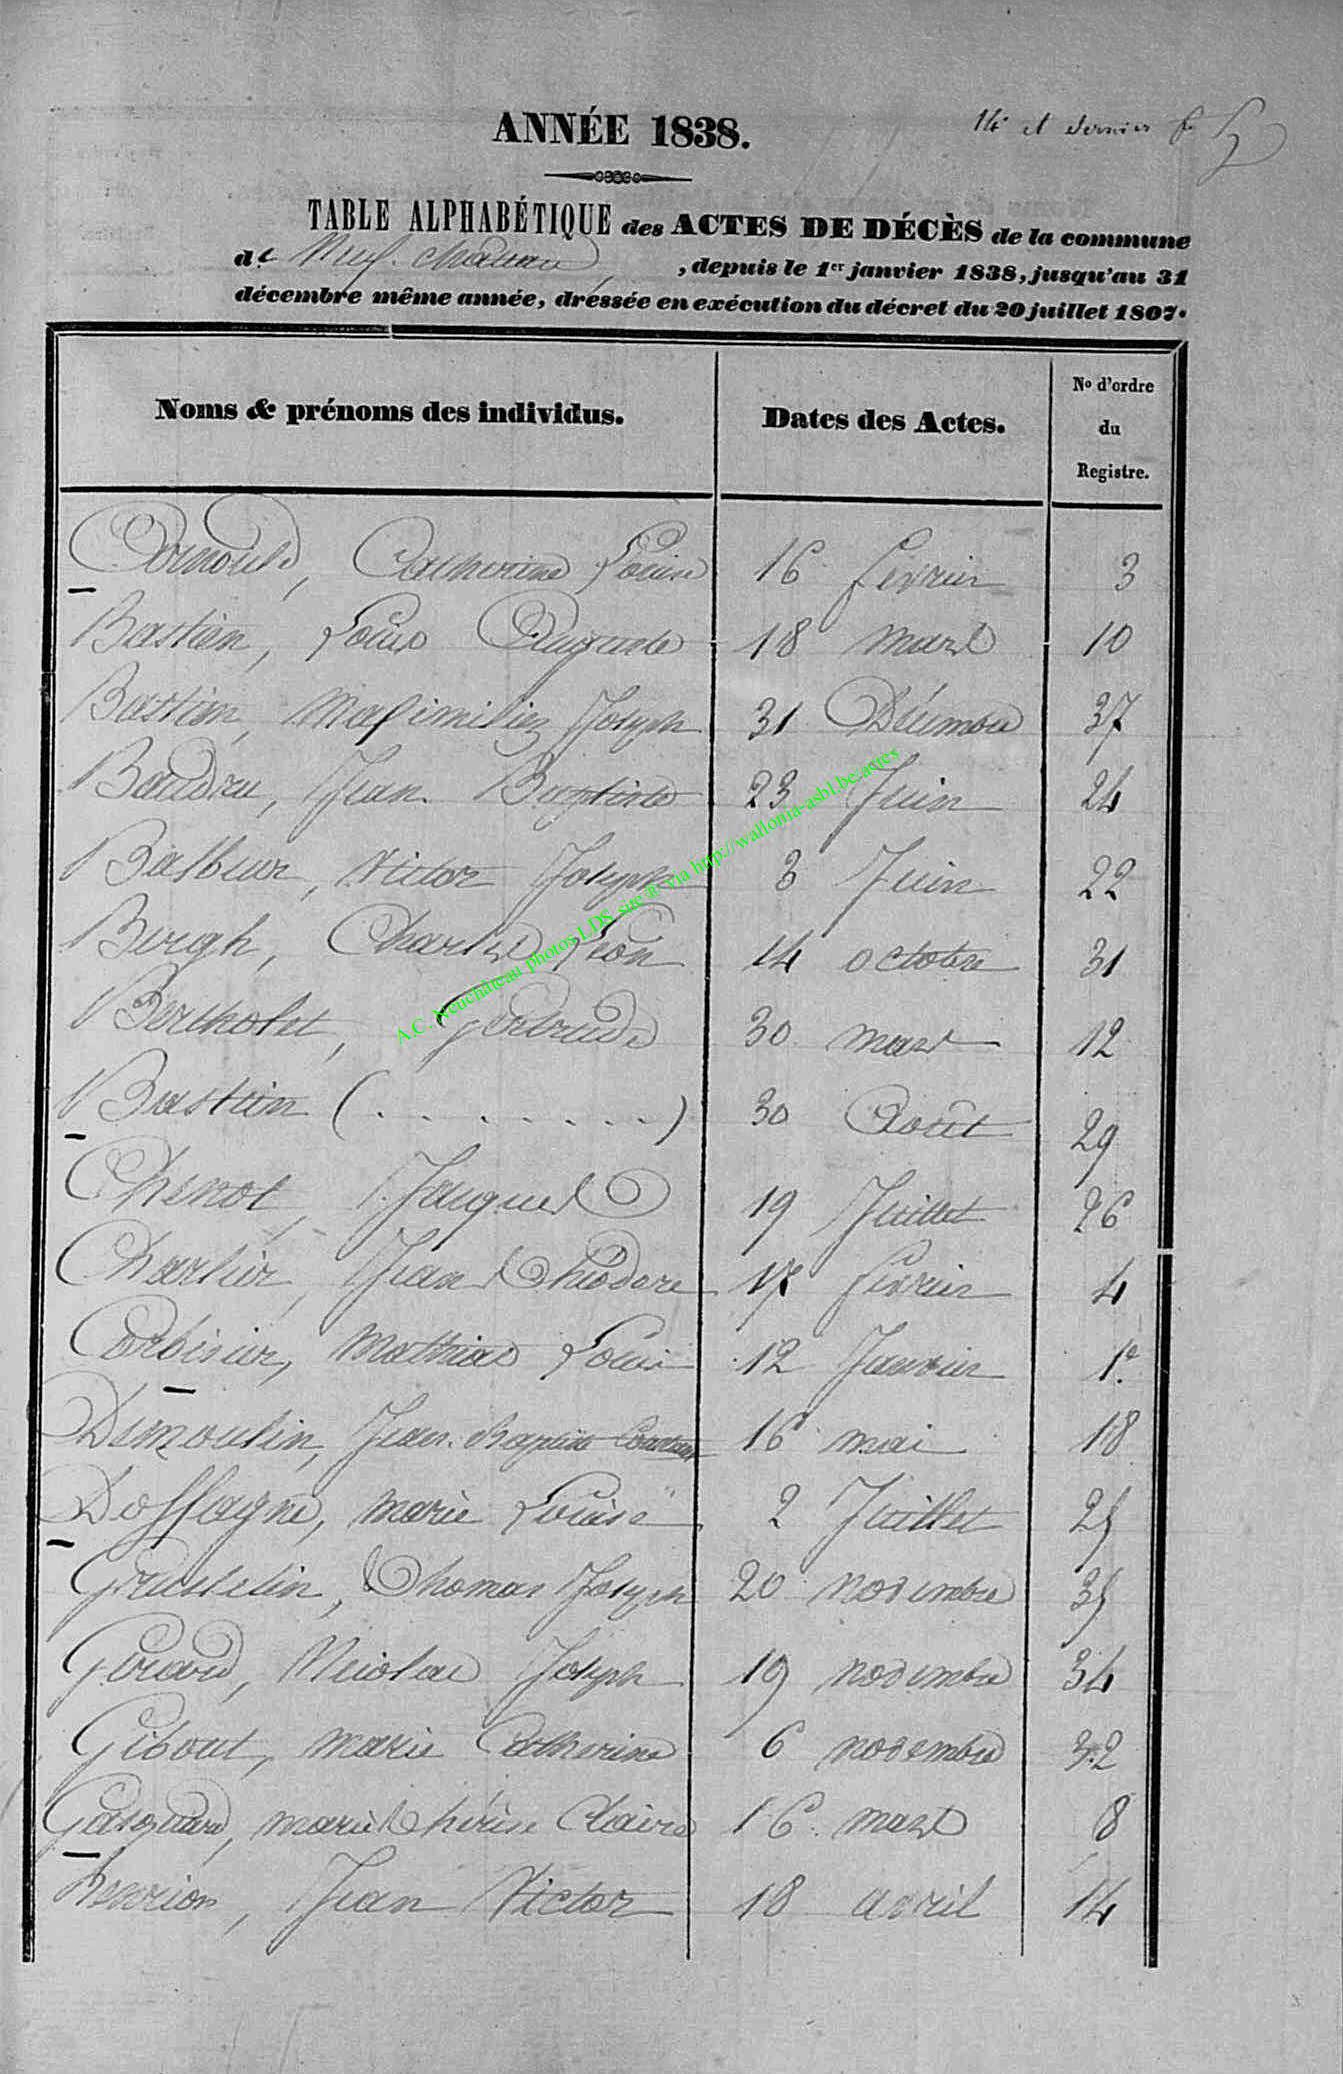 ANNÉE 1838.
14e et dernier f.
TABLE ALPHABÉTIQUE des ACTES DE DÉCÈS de la commune
de Neufchateau, depuis le 1er janvier 1838, jusqu'au 31
décembre même année, dressée en exécution du décret du 20 juillet 1807.
Noms & prénoms des individus. Dates des Actes. No d'ordre du Registre.
Arnould, Catherine Louise 16 fevrier 3
Bastien, Louis Auguste 18 mars 10
Bastien, Maximilien Joseph 31 Décembre 37
Baudru, Jean Baptiste 23 Juin 24
Balbeur, Victor Joseph 3 Juin 22
Bergh, Charles Léon 14 octobre 31
Bertholet, Gertrude 30 mars 12
Bastien (. . . . . . . .) 30 Août 29
Chenot, Jacques 19 Juillet 26
Charlier, Jean Théodore 17 fevrier 4
Corbisier, Mathias Louis 12 Janvier 1er
Demoulin, Jean Baptiste 16 mai 18
Doffagne, marie Louise 2 Juillet 25
Thomas Joseph 20 novembre 35
Gerard, Nicolas Joseph 19 novembre 34
Gibout, marie Catherine 6 novembre 32
marie Thérèse Claire 16 mars 8
henrion, Jean Victor 18 avril 14
A.C. Neuchâteau photos LDS site ® via http://wallonia-asbl.be:actes